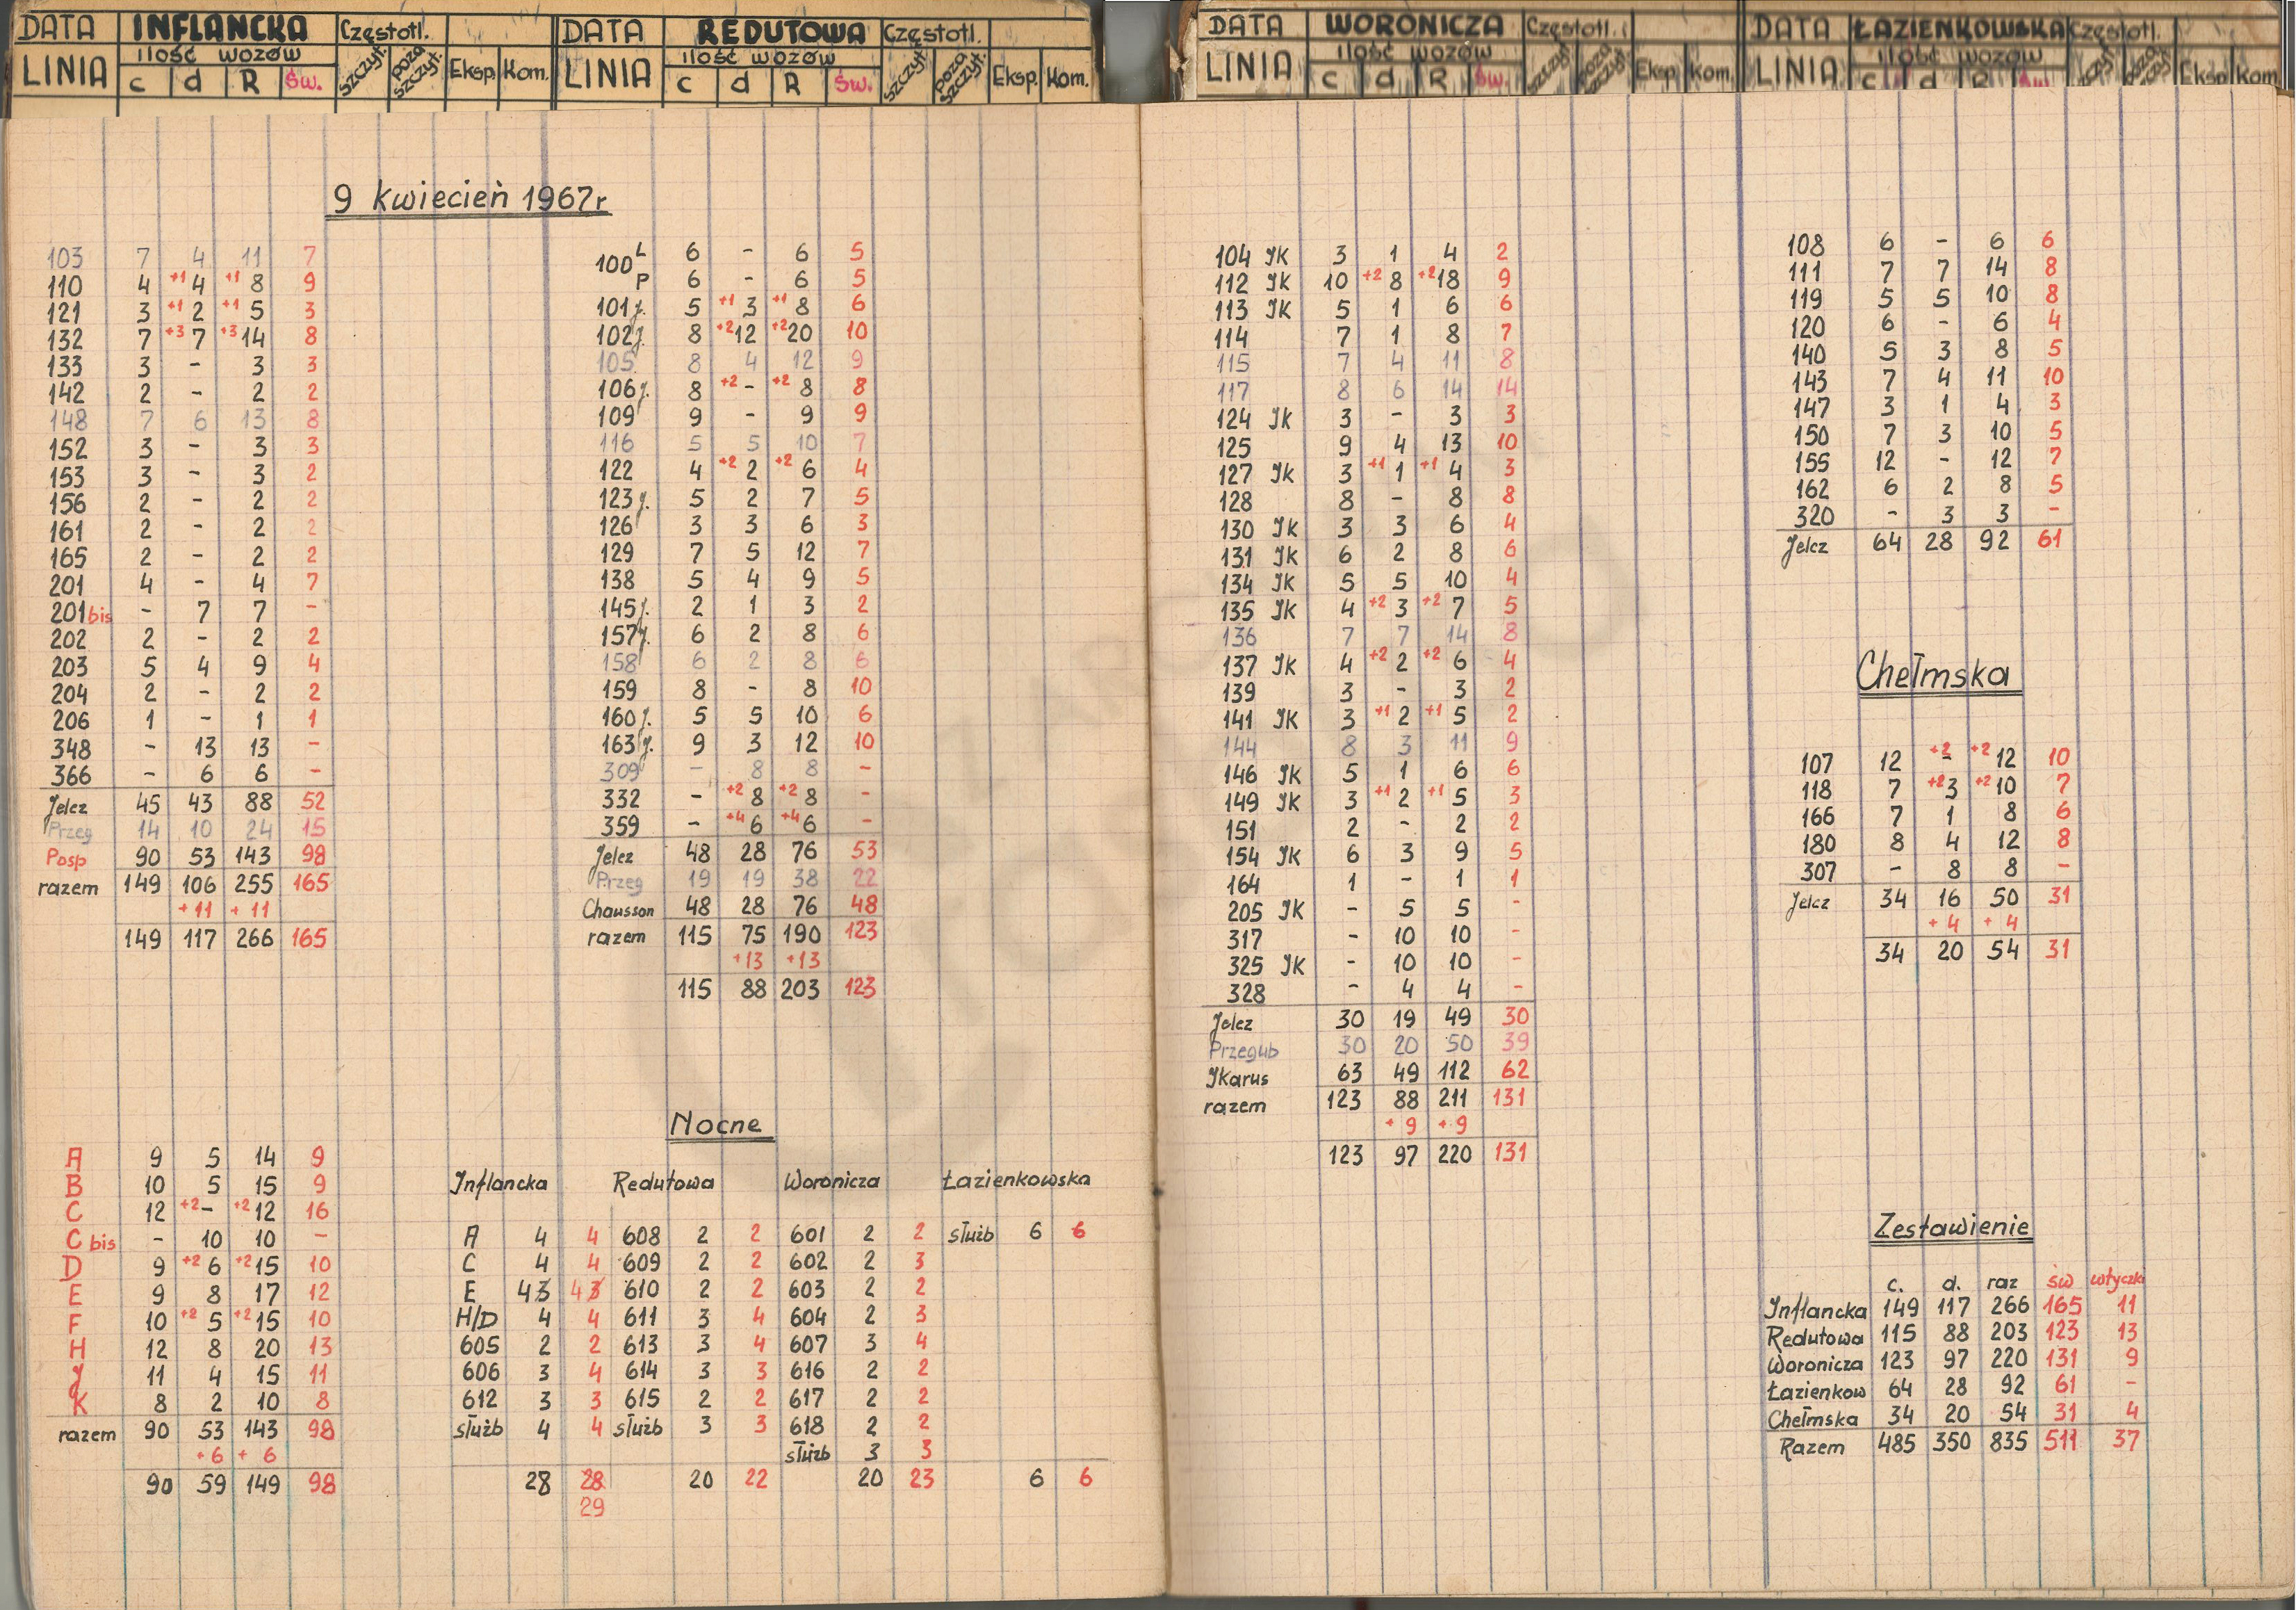 DATA INFLANCKA Częstotl.
LINIA ilość wozów szczyt. poza szczyt. Eksp. Kom.
c d R Św.
DATA REDUTOWA Częstotl.
LINIA ilość wozów szczyt. poza szczyt. Eksp. Kom.
c d R Św.
DATA WORONICZA Częstotl.
LINIA ilość wozów szczyt. poza szczyt. Eksp. Kom.
c d R Św.
DATA ŁAZIENKOWSKA Częstotl.
LINIA ilość wozów szczyt. poza szczyt. Eksp. Kom.
c d R Św.
9 kwiecień 1967r
103 7 4 11 7
110 4 +1 4 +1 8 9
121 3 +1 2 +1 5 3
132 7 +3 7 +3 14 8
133 3 - 3 3
142 2 - 2 2
148 7 6 13 8
152 3 - 3 3
153 3 - 3 2
156 2 - 2 2
161 2 - 2 2
165 2 - 2 2
201 4 - 4 7
201 bis - 7 7 -
202 2 - 2 2
203 5 4 9 4
204 2 - 2 2
206 1 - 1 1
348 - 13 13 -
366 - 6 6 -
Jelcz 45 43 88 52
Przeg 14 10 24 15
Posp 90 53 143 98
razem 149 106 255 165
+11 +11
149 117 266 165
A 9 5 14 9
B 10 5 15 9
C 12 +2 - +2 12 16
C bis - 10 10 -
D 9 +2 6 +2 15 10
E 9 8 17 12
F 10 +2 5 +2 15 10
H 12 8 20 13
J 11 4 15 11
K 8 2 10 8
razem 90 53 143 98
+6 +6
90 59 149 98
100 L 6 - 6 5
P 6 - 6 5
101 j. 5 +1 3 +1 8 6
102 j. 8 +2 12 +2 20 10
105 8 4 12 9
106 j. 8 +2 - +2 8 8
109 9 - 9 9
116 5 5 10 7
122 4 +2 2 +2 6 4
123 j. 5 2 7 5
126 3 3 6 3
129 7 5 12 7
138 5 4 9 5
145 j. 2 1 3 2
157 j. 6 2 8 6
158 6 2 8 6
159 8 - 8 10
160 j. 5 5 10 6
163 j. 9 3 12 10
309 - 8 8 -
332 - +2 8 +2 8 -
359 - +4 6 +4 6 -
Jelcz 48 28 76 53
Przeg 19 19 38 22
Chausson 48 28 76 48
razem 115 75 190 123
+13 +13
115 88 203 123
Nocne
Inflancka Redutowa Woronicza Łazienkowska
A 4 4 608 2 2 601 2 2 służb 6 6
C 4 4 609 2 2 602 2 3
E 4 3 4 3 610 2 2 603 2 2
H/D 4 4 611 3 4 604 2 3
605 2 2 613 3 4 607 3 4
606 3 4 614 3 3 616 2 2
612 3 3 615 2 2 617 2 2
służb 4 4 służb 3 3 618 2 2
służb 3 3
28 28 20 22 20 23 6 6
29
104 JK 3 1 4 2
112 JK 10 +2 8 +2 18 9
113 JK 5 1 6 6
114 7 1 8 7
115 7 4 11 8
117 8 6 14 14
124 JK 3 - 3 3
125 9 4 13 10
127 JK 3 +1 1 +1 4 3
128 8 - 8 8
130 JK 3 3 6 4
131 JK 6 2 8 6
134 JK 5 5 10 4
135 JK 4 +2 3 +2 7 5
136 7 7 14 8
137 JK 4 +2 2 +2 6 4
139 3 - 3 2
141 JK 3 +1 2 +1 5 2
144 8 3 11 9
146 JK 5 1 6 6
149 JK 3 +1 2 +1 5 3
151 2 - 2 2
154 JK 6 3 9 5
164 1 - 1 1
205 JK - 5 5 -
317 - 10 10 -
325 JK - 10 10 -
328 - 4 4 -
Jelcz 30 19 49 30
Przegub 30 20 50 39
JKarus 63 49 112 62
razem 123 88 211 131
+9 +9
123 97 220 131
108 6 - 6 6
111 7 7 14 8
119 5 5 10 8
120 6 - 6 4
140 5 3 8 5
143 7 4 11 10
147 3 1 4 3
150 7 3 10 5
155 12 - 12 7
162 6 2 8 5
320 - 3 3 -
Jelcz 64 28 92 61
Chełmska
107 12 +2 - +2 12 10
118 7 +2 3 +2 10 7
166 7 1 8 6
180 8 4 12 8
307 - 8 8 -
Jelcz 34 16 50 31
+4 +4
34 20 54 31
Zestawienie
c. d. raz św wtyczki
Inflancka 149 117 266 165 11
Redutowa 115 88 203 123 13
Woronicza 123 97 220 131 9
Łazienkow 64 28 92 61 -
Chełmska 34 20 54 31 4
Razem 485 350 835 511 37